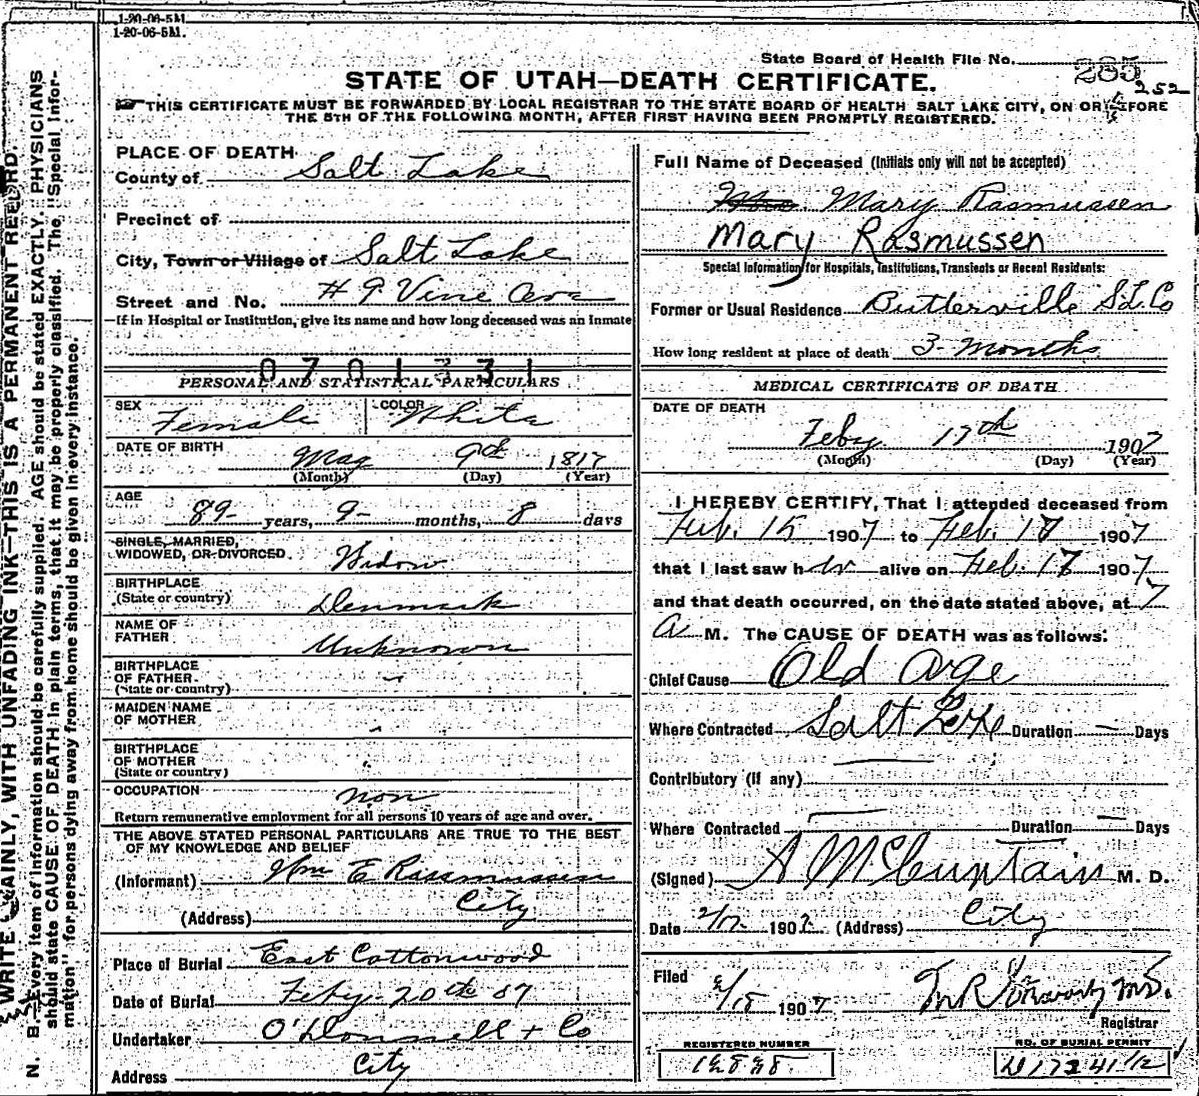 1-20-06-5M.
1-20-06-5M.
State Board of Health File No. 285
252
STATE OF UTAH—DEATH CERTIFICATE.
THIS CERTIFICATE MUST BE FORWARDED BY LOCAL REGISTRAR TO THE STATE BOARD OF HEALTH SALT LAKE CITY, ON OR BEFORE
THE 5TH OF THE FOLLOWING MONTH, AFTER FIRST HAVING BEEN PROMPTLY REGISTERED.
WRITE PLAINLY, WITH UNFADING INK—THIS IS A PERMANENT RECORD.
N. B.—Every item of information should be carefully supplied. AGE should be stated EXACTLY. PHYSICIANS
should state CAUSE OF DEATH in plain terms, that it may be properly classified. The "Special Infor-
mation" for persons dying away from home should be given in every instance.
PLACE OF DEATH
County of Salt Lake
Precinct of
City, Town or Village of Salt Lake
Street and No. # 9 Vine Ave
If in Hospital or Institution, give its name and how long deceased was an inmate
0701331
PERSONAL AND STATISTICAL PARTICULARS
SEX Female COLOR White
DATE OF BIRTH May 9th 1817
(Month) (Day) (Year)
AGE 89 years, 9 months, 8 days
SINGLE, MARRIED,
WIDOWED, OR DIVORCED. Widow
BIRTHPLACE
(State or country) Denmark
NAME OF
FATHER Unknown
BIRTHPLACE
OF FATHER
(State or country)
MAIDEN NAME
OF MOTHER
BIRTHPLACE
OF MOTHER
(State or country)
OCCUPATION non
Return remunerative employment for all persons 10 years of age and over.
THE ABOVE STATED PERSONAL PARTICULARS ARE TRUE TO THE BEST
OF MY KNOWLEDGE AND BELIEF
(Informant) Wm E Rassmussen
(Address) City
Place of Burial East Cottonwood
Date of Burial Feby 20th 07
Undertaker O'Donnell + Co
Address City
Full Name of Deceased (Initials only will not be accepted)
Mrs Mary Rasmussen
Mary Rasmussen
Special Information for Hospitals, Institutions, Transients or Recent Residents:
Former or Usual Residence Butlerville S.L. Co
How long resident at place of death 3 Months
MEDICAL CERTIFICATE OF DEATH
DATE OF DEATH
Feby 17th 1907
(Month) (Day) (Year)
I HEREBY CERTIFY, That I attended deceased from
Feb. 15 1907 to Feb. 17 1907
that I last saw her alive on Feb. 17 1907
and that death occurred, on the date stated above, at 7
A M. The CAUSE OF DEATH was as follows:
Chief Cause Old Age
Where Contracted Salt Lake Duration — Days
Contributory (if any)
Where Contracted Duration — Days
(Signed) M. D.
Date 2/17 1907 (Address) City
Filed 2/18 1907
Registrar
REGISTERED NUMBER
NO. OF BURIAL PERMIT
D 17241 1/2